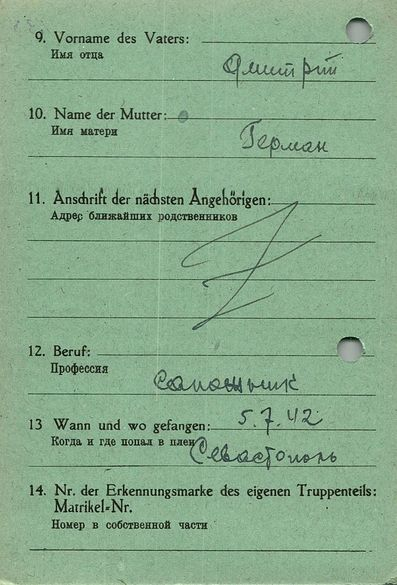 9. Vorname des Vaters:
Имя отца
Дмитрий
10. Name der Mutter:
Имя матери
Герман
11. Anschrift der nächsten Angehörigen:
Адрес ближайших родственников
12. Beruf:
Профессия
Сапожник
13 Wann und wo gefangen: 5.7.42
Когда и где попал в плен Севастополь
14. Nr. der Erkennungsmarke des eigenen Truppenteils:
Matrikel-Nr.
Номер в собственной части